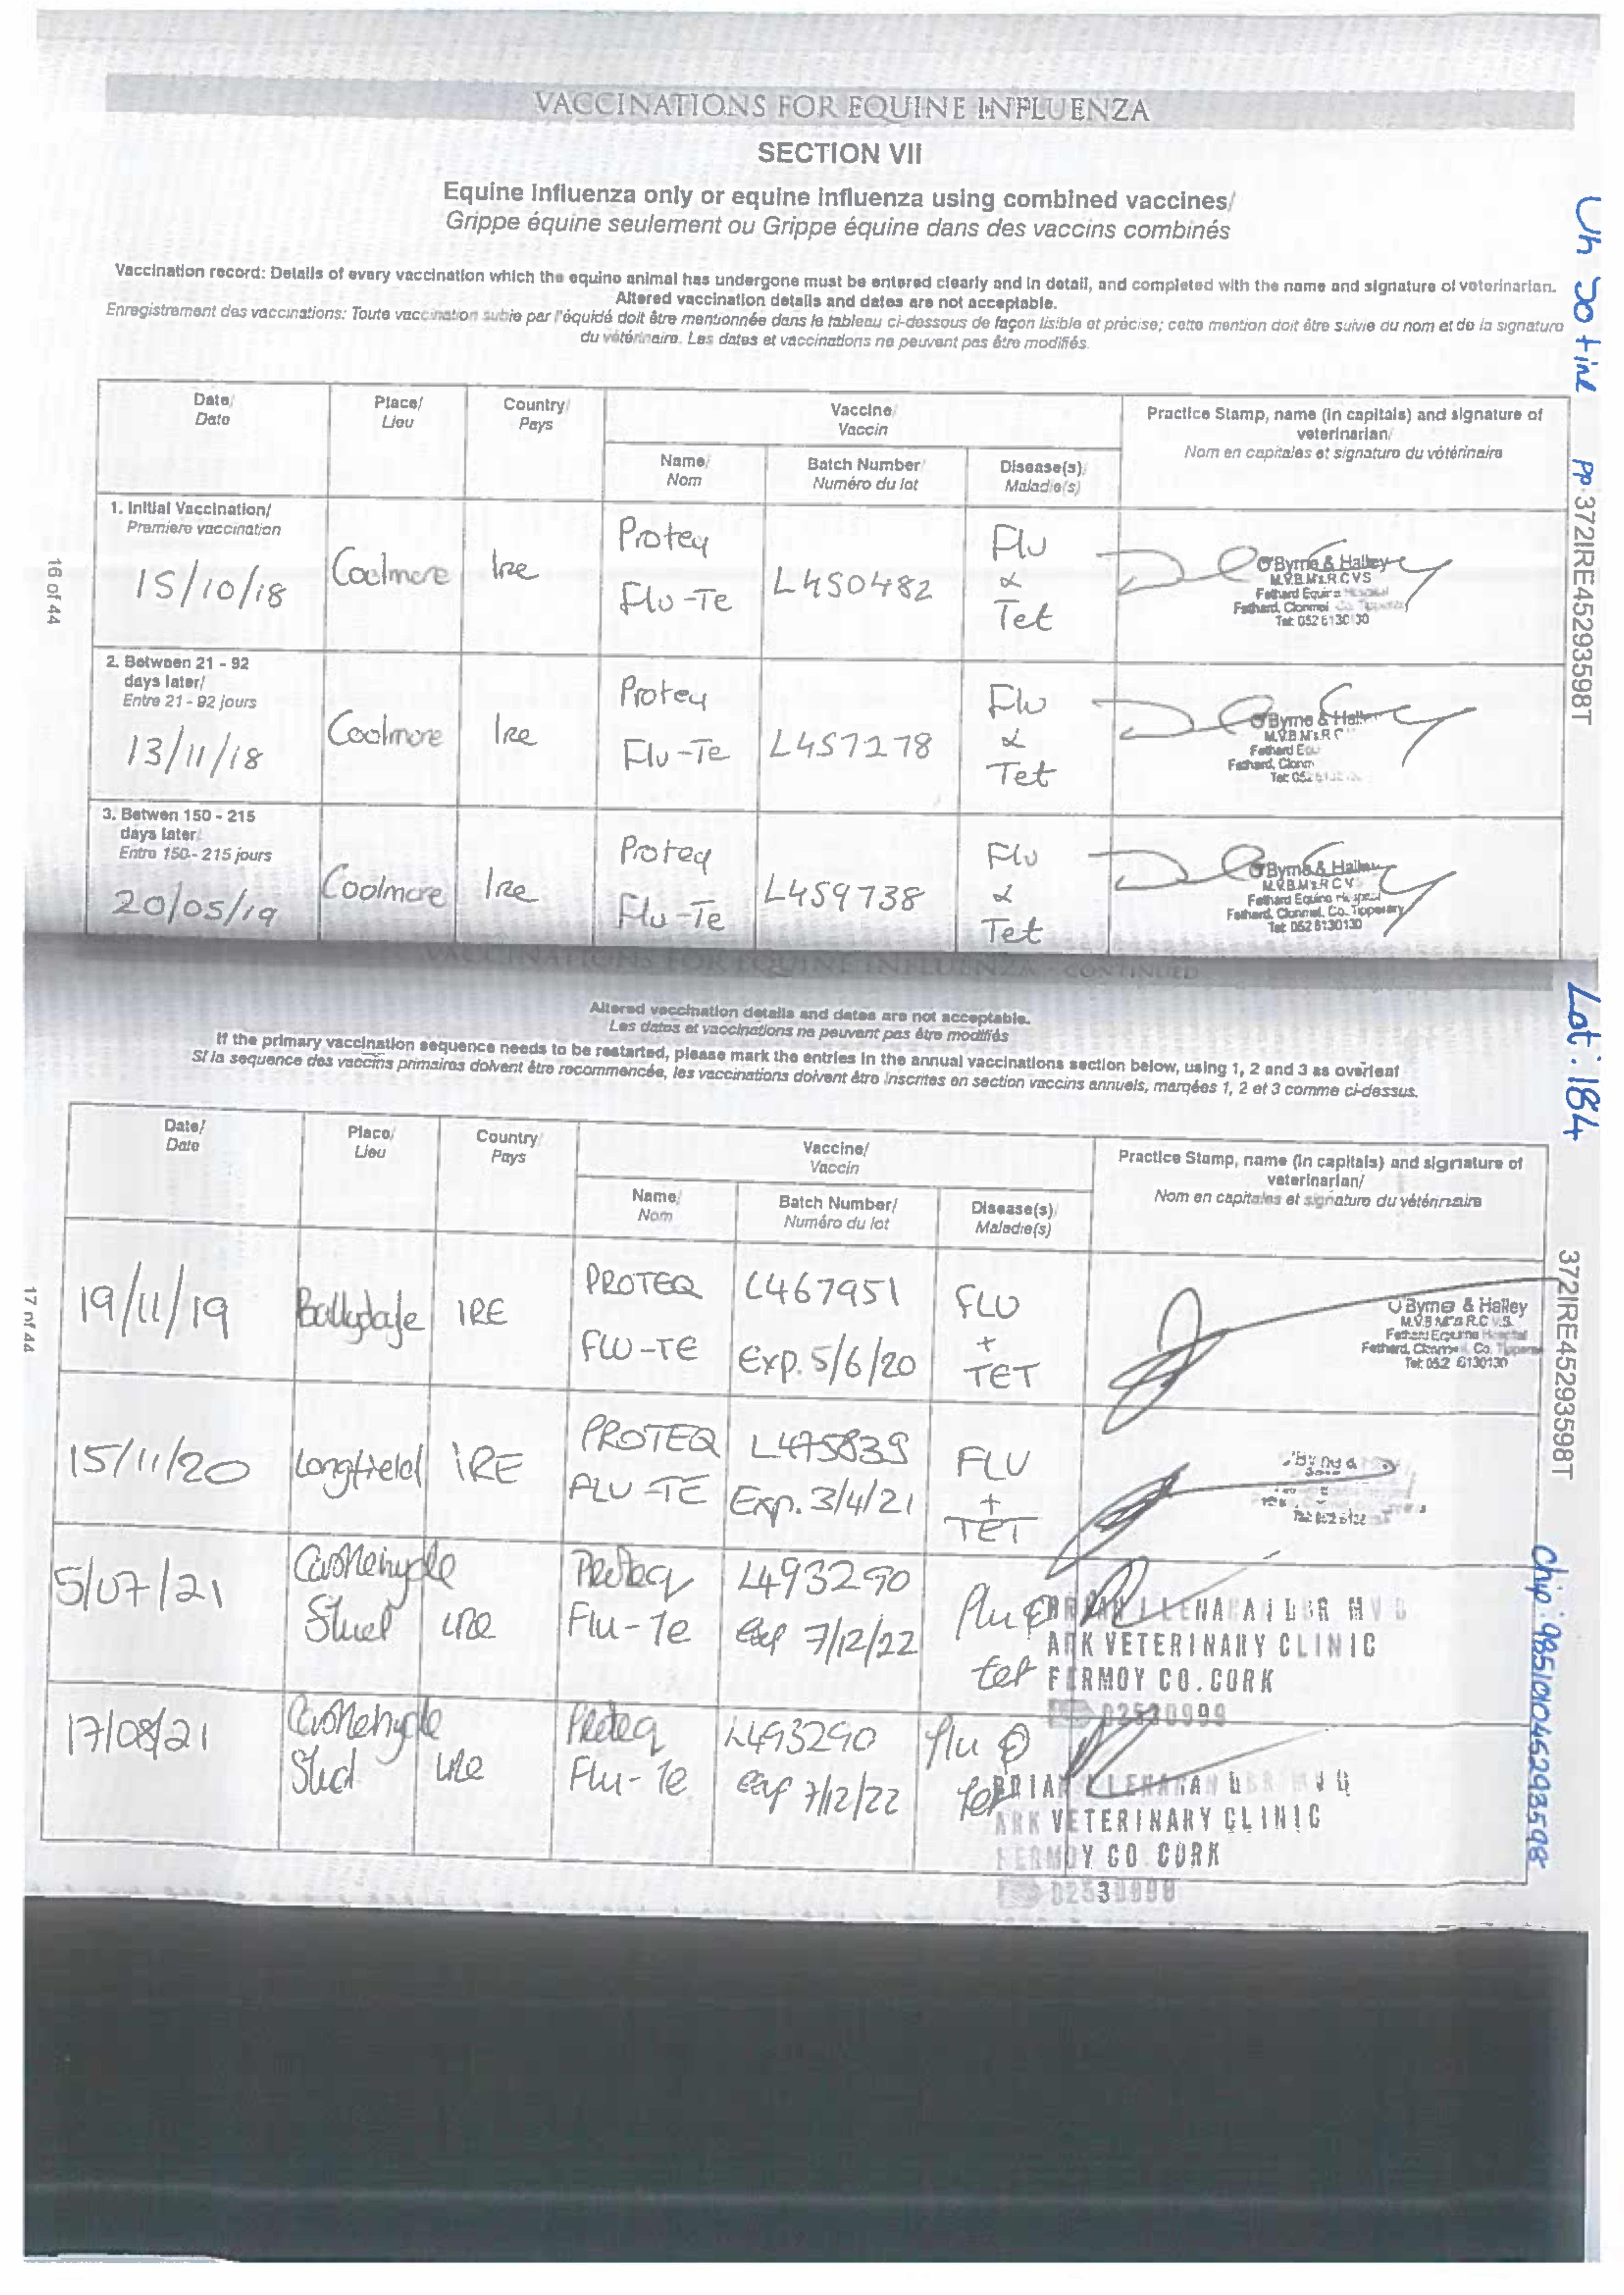 VACCINATIONS FOR EQUINE INFLUENZA
SECTION VII
Equine Influenza only or equine influenza using combined vaccines/
Grippe équine seulement ou Grippe équine dans des vaccins combinés
Vaccination record: Details of every vaccination which the equine animal has undergone must be entered clearly and in detail, and completed with the name and signature of veterinarian.
Altered vaccination details and dates are not acceptable.
Enregistrement des vaccinations: Toute vaccination subie par l'équidé doit être mentionnée dans le tableau ci-dessous de façon lisible et précise; cette mention doit être suivie du nom et de la signature
du vétérinaire. Les dates et vaccinations ne peuvent pas être modifiés.
Date/ Place/ Country/ Vaccine/ Practice Stamp, name (in capitals) and signature of
Date Lieu Pays Vaccin veterinarian/
Nom en capitales et signature du vétérinaire
Name/ Batch Number/ Disease(s)/
Nom Numéro du lot Maladie(s)
1. Initial Vaccination/
Premiere vaccination
15/10/18 Coolmore Ire Proteq Flu-Te L450482 Flu & Tet
O'Byrne & Halley
M.V.B.M.R.C.V.S
Fethard Equine Hospital
Fethard, Clonmel Co. Tipperary
Tel: 052 6130130
2. Between 21 - 92
days later/
Entre 21 - 92 jours
13/11/18 Coolmore Ire Proteq Flu-Te L457278 Flu & Tet
O'Byrne & Halley
Fethard, Clonm
3. Betwen 150 - 215
days later/
Entre 150 - 215 jours
20/05/19 Coolmore Ire Proteq Flu-Te L459738 Flu & Tet
O'Byrne & Halley
Fethard Equine Hospital
Fethard, Clonmel, Co. Tipperary
Tel: 052 6130130
16 of 44
Uh So Fine PP. 372IRE45293598T
VACCINATIONS FOR EQUINE INFLUENZA - CONTINUED
Altered vaccination details and dates are not acceptable.
Les dates et vaccinations ne peuvent pas être modifiés
If the primary vaccination sequence needs to be restarted, please mark the entries in the annual vaccinations section below, using 1, 2 and 3 as overleaf
Si la sequence des vaccins primaires doivent être recommencée, les vaccinations doivent être inscrites en section vaccins annuels, marqées 1, 2 et 3 comme ci-dessus.
Date/ Place/ Country/ Vaccine/ Practice Stamp, name (in capitals) and signature of
Date Lieu Pays Vaccin veterinarian/
Nom en capitales et signature du vétérinaire
Name/ Batch Number/ Disease(s)/
Nom Numéro du lot Maladie(s)
19/11/19 Ballydoyle IRE PROTEQ FLU-TE L467951 Exp. 5/6/20 FLU + TET
O'Byrne & Halley
Fethard Equine Hospital
Fethard, Clonmel, Co. Tipperary
Tel: 052 6130130
15/11/20 Longfield IRE PROTEQ FLU-TE L475839 Exp. 3/4/21 FLU + TET
5/07/21 Castlehyde Stud IRE Proteq Flu-Te L493290 Exp 7/12/22 Flu & tet
ARK VETERINARY CLINIC
FERMOY CO. CORK
02530999
17/08/21 Castlehyde Stud IRE Proteq Flu-Te L493290 Exp 7/12/22 flu & tet
ARK VETERINARY CLINIC
FERMOY CO CORK
02530999
17 of 44
Lot: 184
372IRE45293598T
Chip: 985101045293598